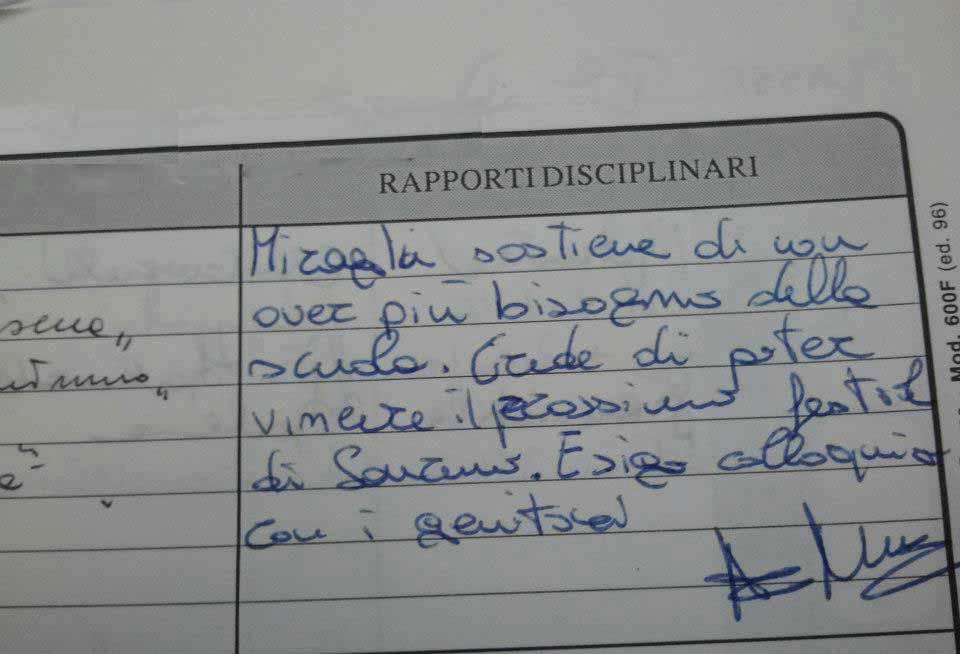 RAPPORTI DISCIPLINARI
Miraglia sostiene di non
aver più bisogno della
scuola. Crede di poter
vincere il prossimo festival
di Sanremo. Esigo colloquio
con i genitori
Mod. 600F (ed. 96)